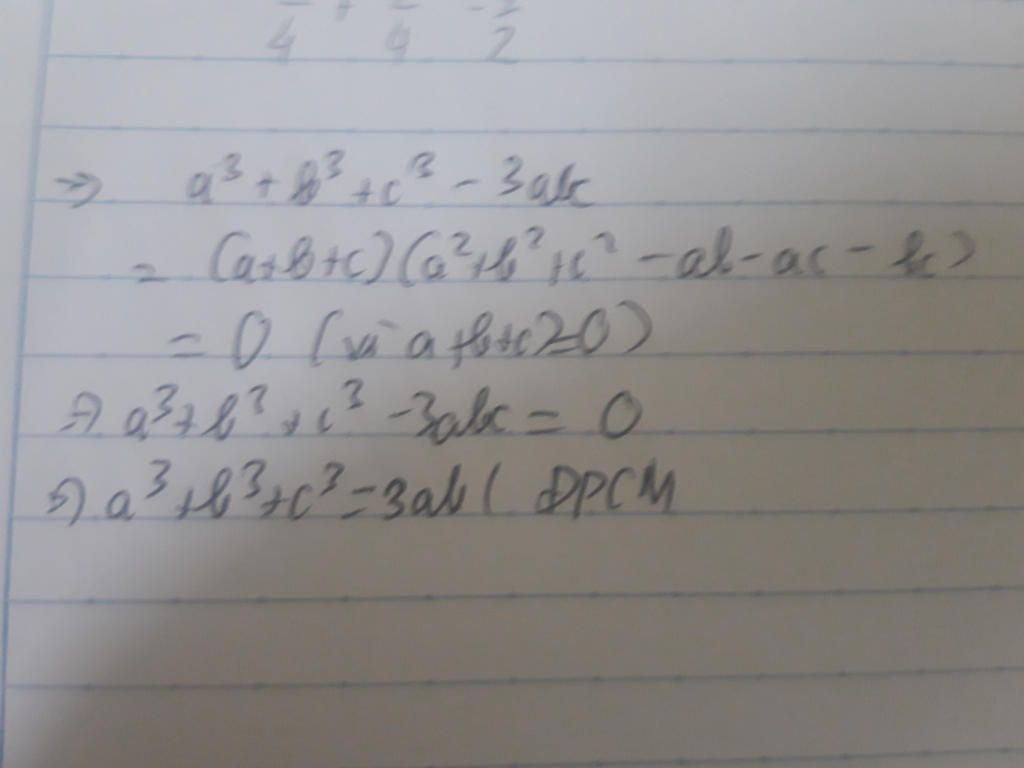 4 4 2
=> a³ + b³ + c³ - 3abc
= (a+b+c)(a²+b²+c² - ab - ac - bc)
= 0 (vì a+b+c=0)
=> a³ + b³ + c³ - 3abc = 0
=> a³ + b³ + c³ = 3abc ĐPCM